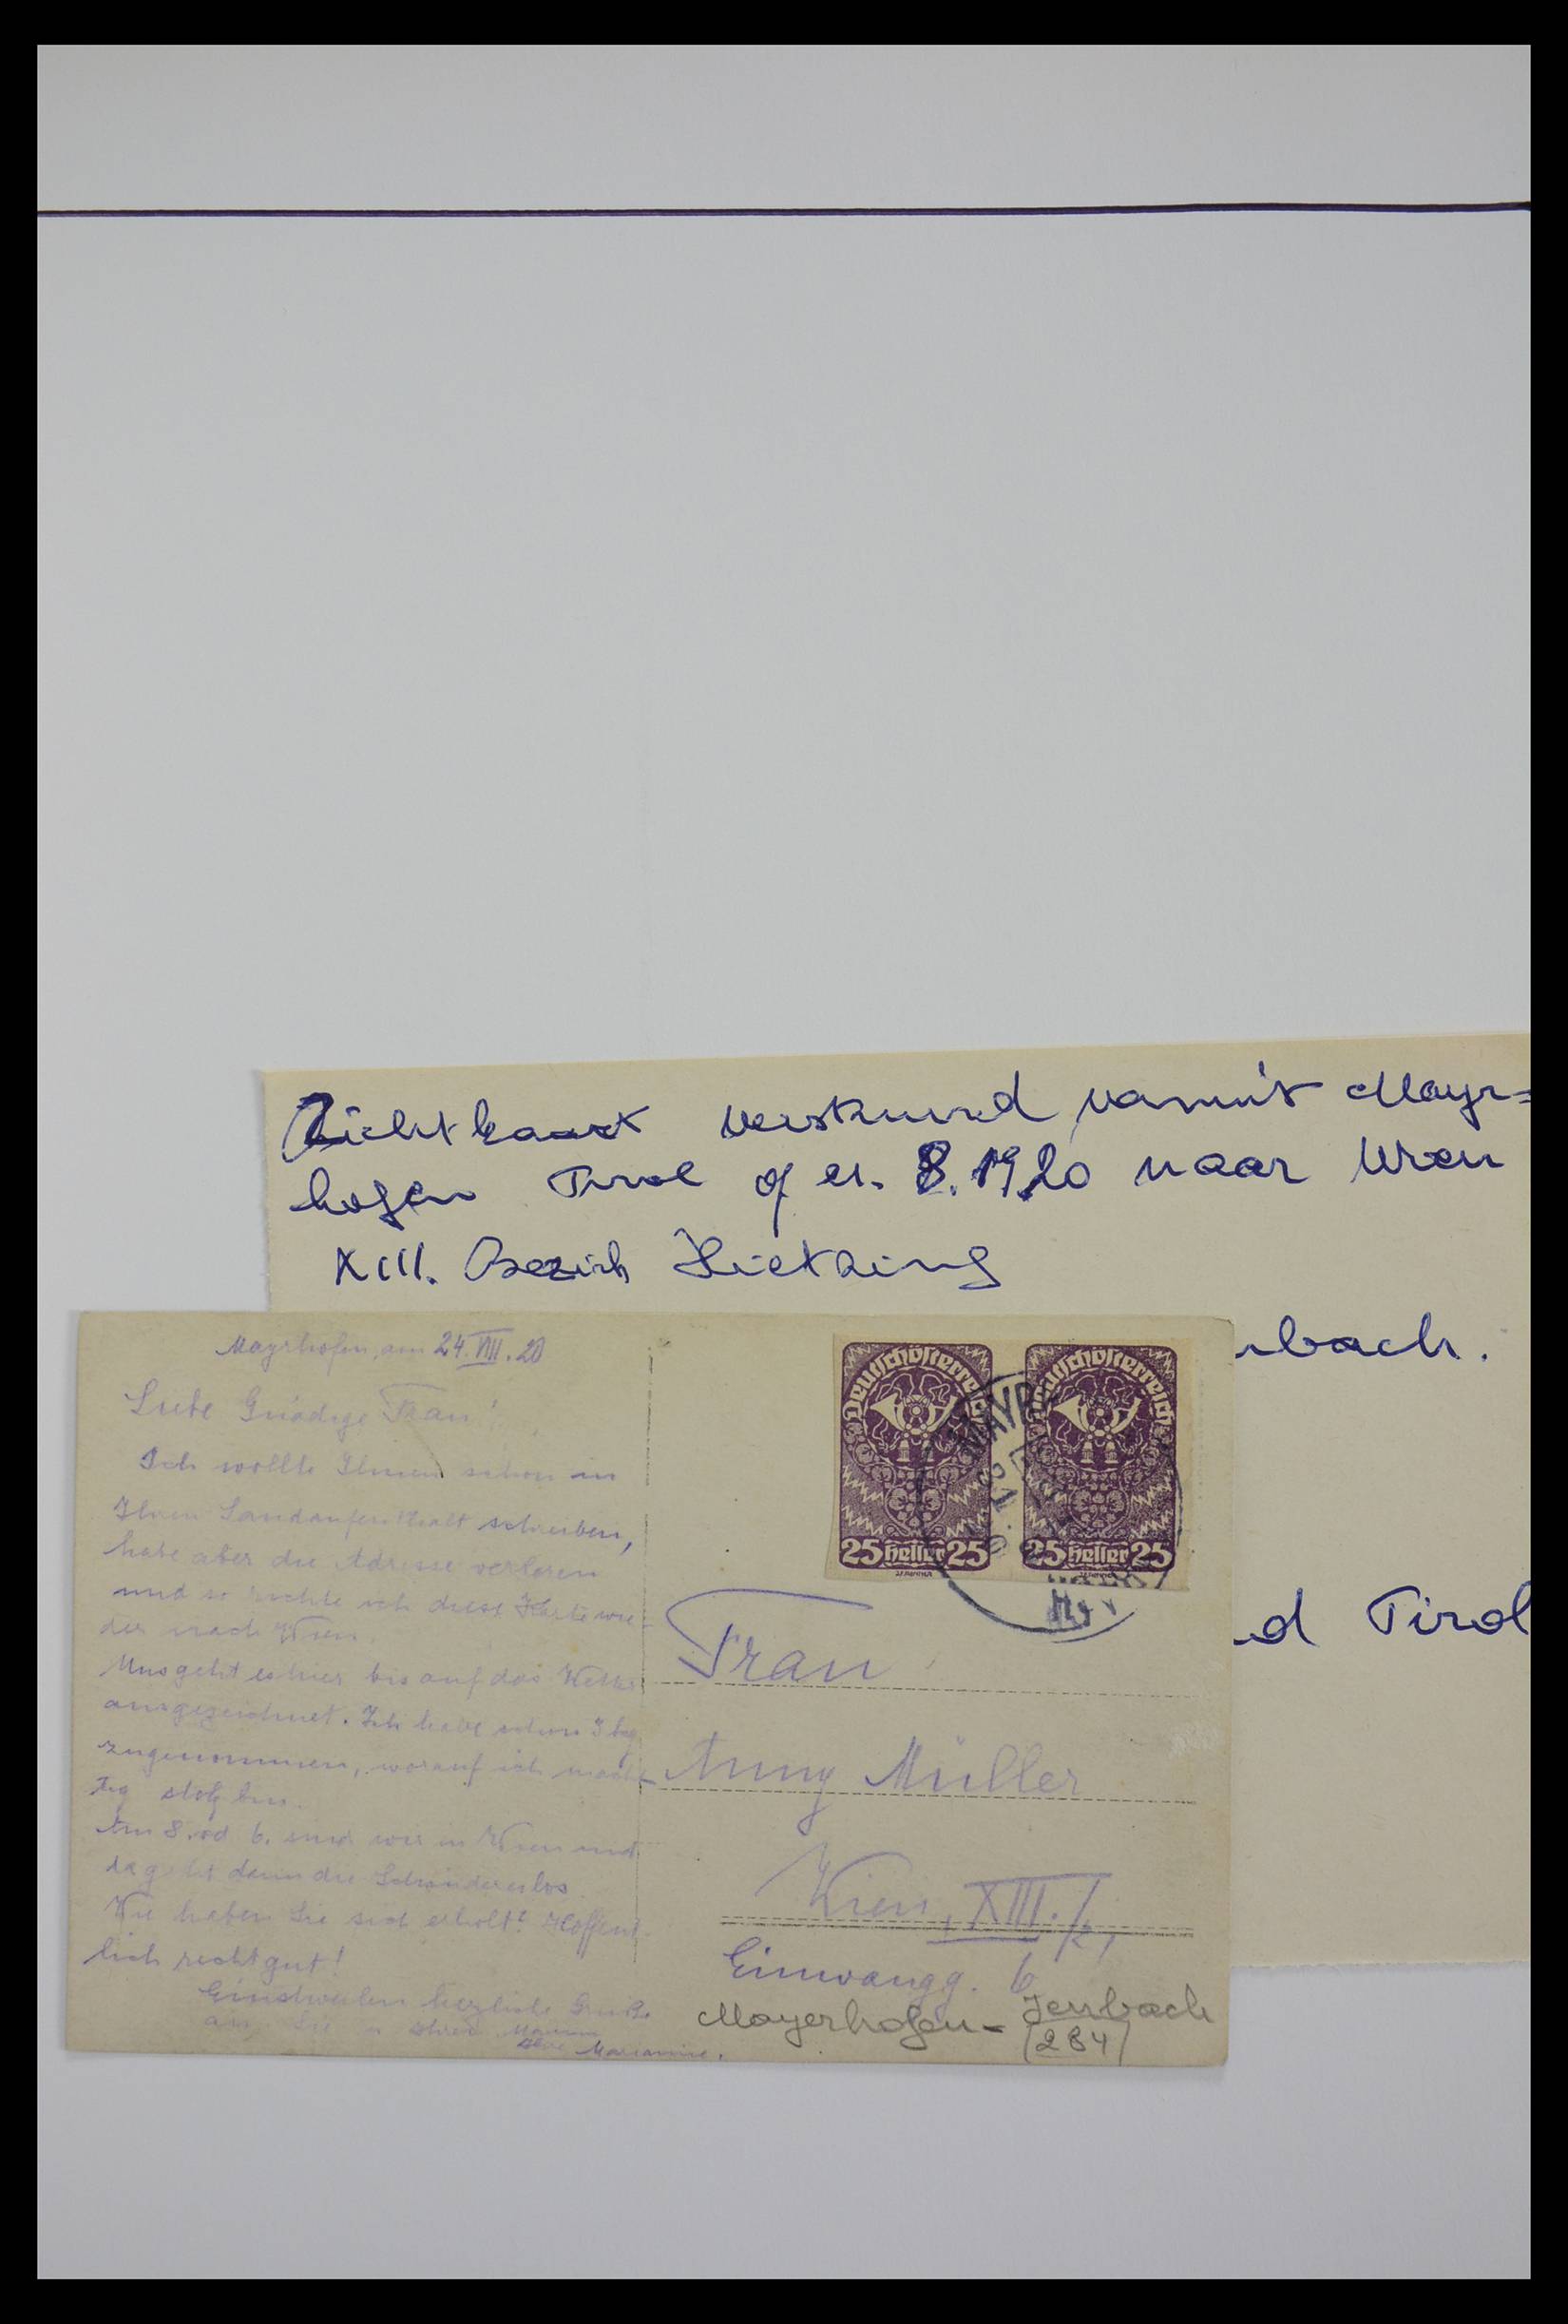 Zichtkaart verstuurd vanuit Mayr=
hofen Tirol op 21. 8. 1920 naar Wien
XIII. Bezirk Hietzing
nbach.
d Tirol
Mayrhofen, am 24. VIII. 20
Liebe Gnädige Frau!
Ich wollte Ihnen schon in
Ihren Landaufenthalt schreiben,
habe aber die Adresse verloren
und so richte ich diese Karte wie-
der nach Wien.
Uns geht es hier bis auf das Wetter
ausgezeichnet. Ich habe schon 3 kg
zugenommen, worauf ich mäch-
tig stolz bin.
Am 8. od 6. sind wir in Wien und
da geht dann die Schinderei los.
Wie haben Sie sich erholt? Hoffent-
lich recht gut!
Einstweilen herzliche Grüße
an Sie
Marianne.
Deutschösterreich
25 Heller 25
Deutschösterreich
25 Heller 25
MAYR
Frau
Anny Müller
Wien, XIII./2,
Einwangg. 6
Mayerhofen - Jenbach
(284)